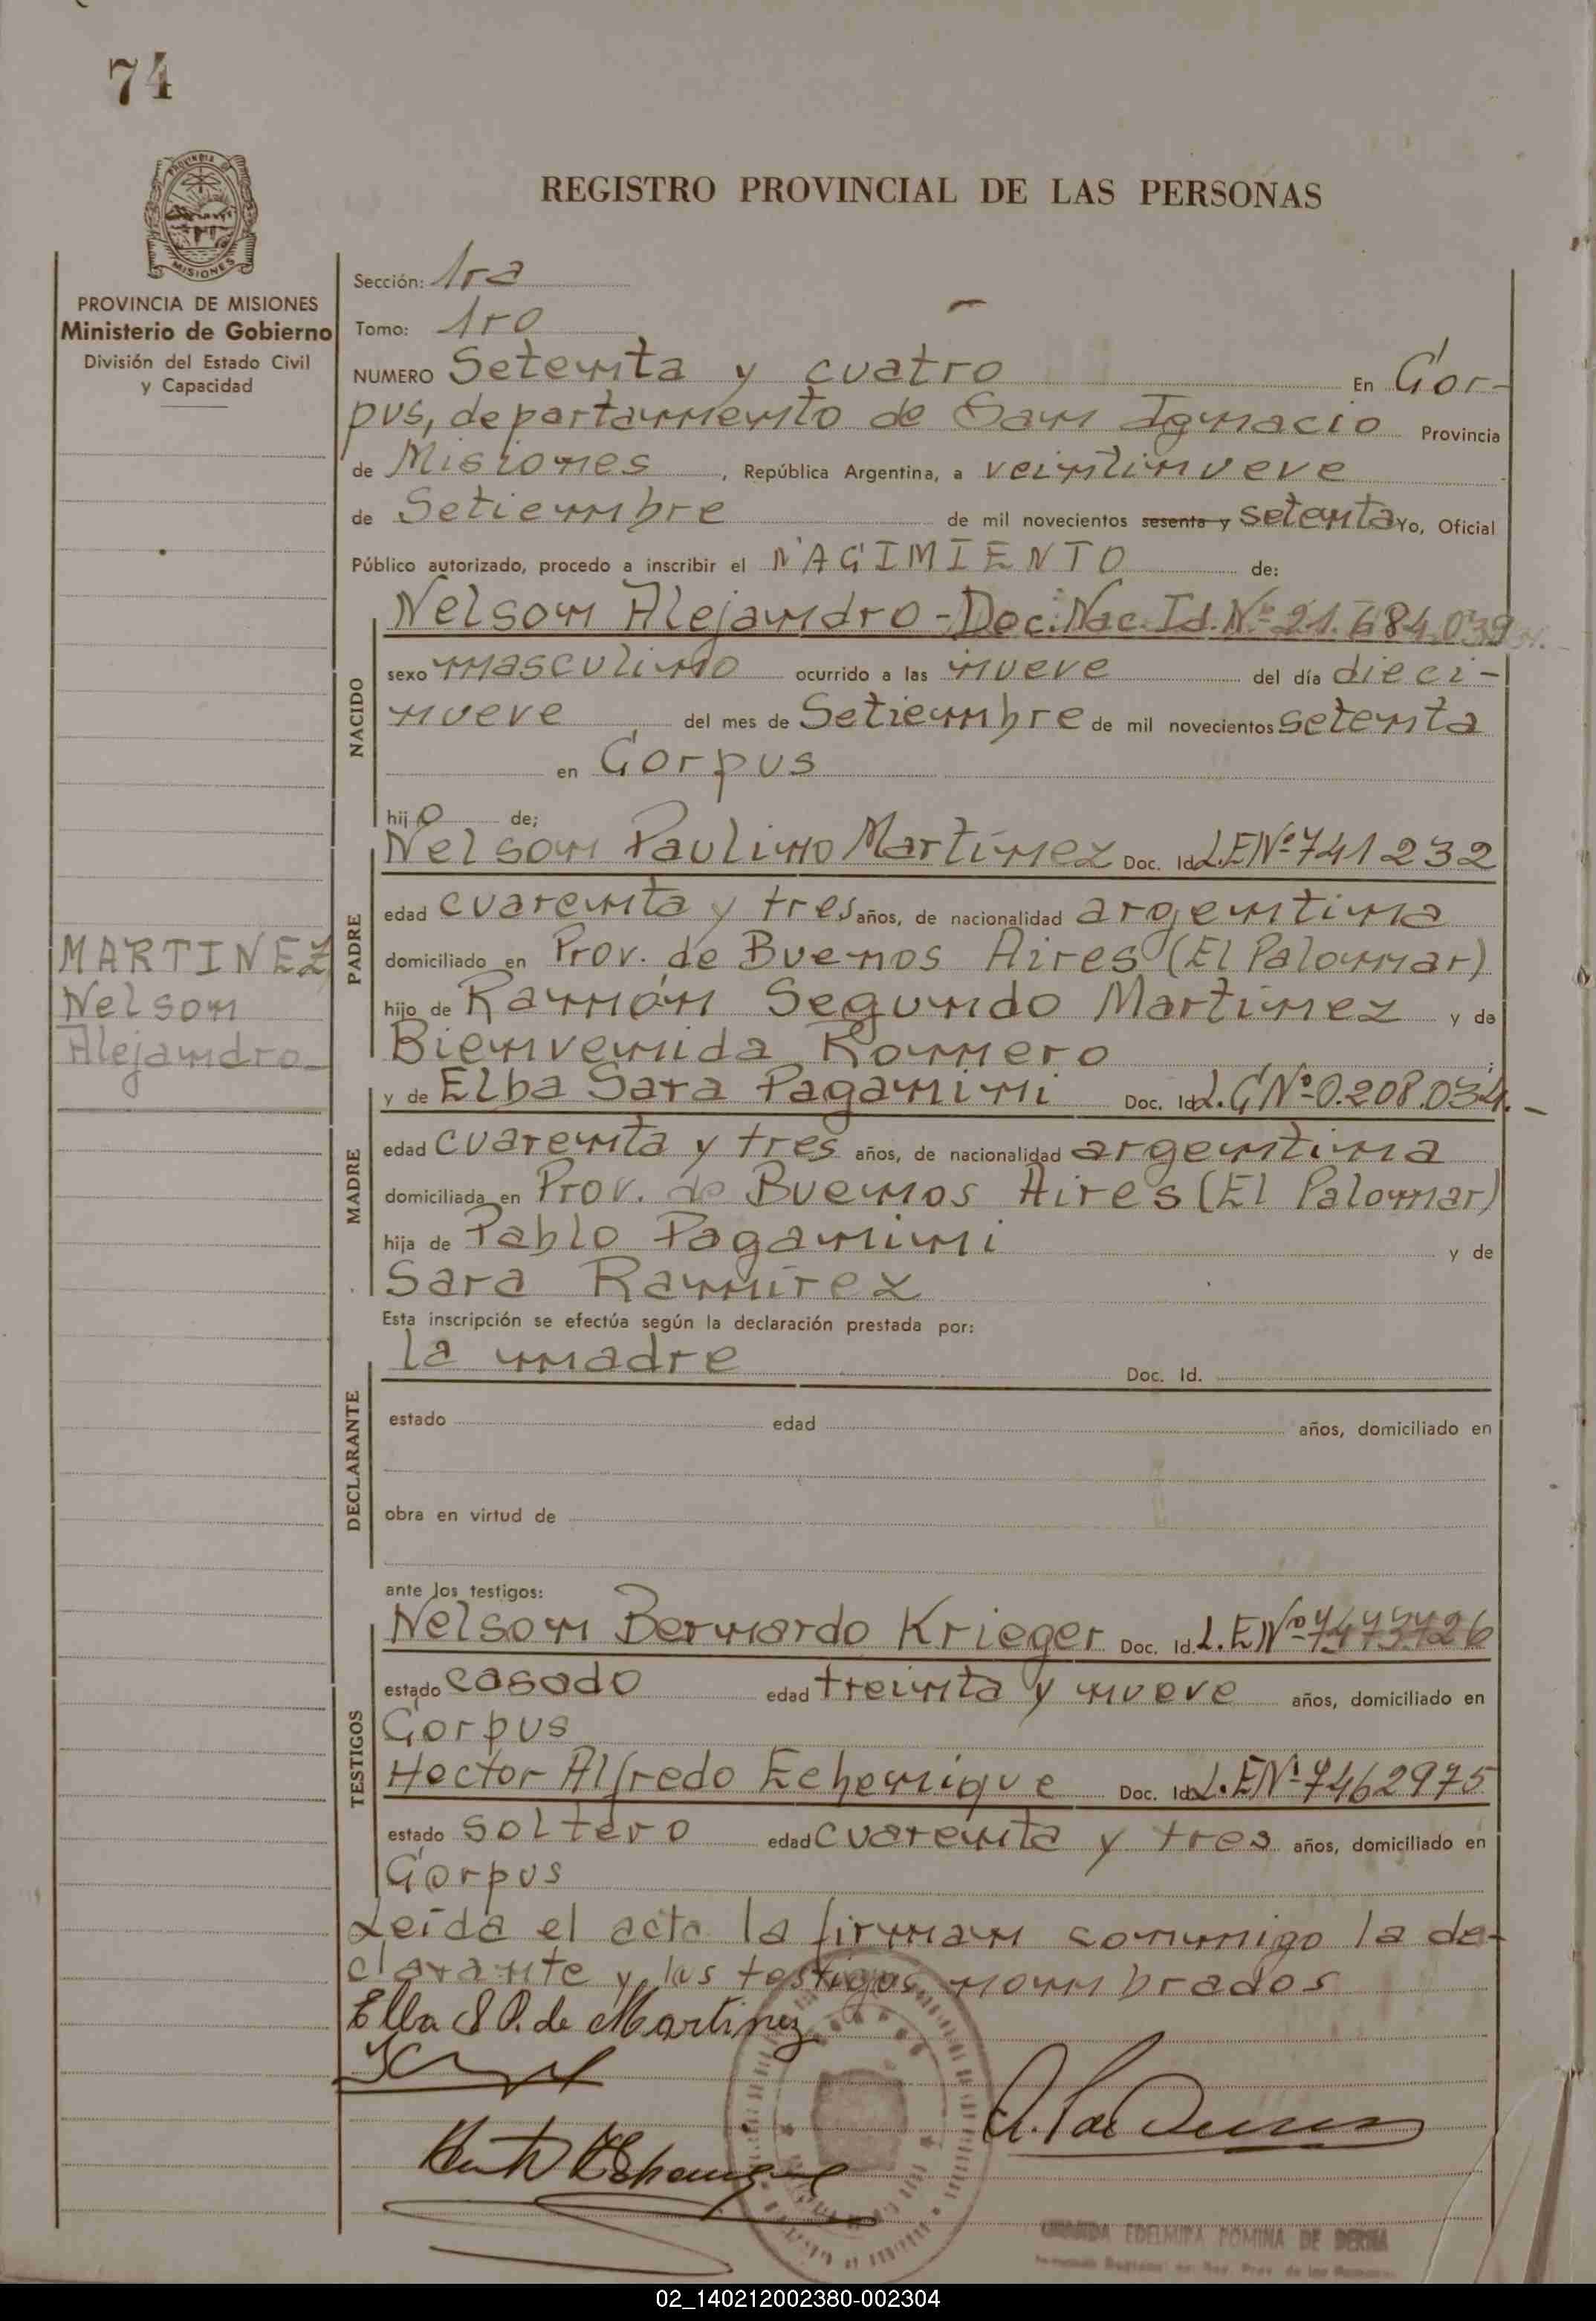 74
REGISTRO PROVINCIAL DE LAS PERSONAS
MISIONES
PROVINCIA DE MISIONES
Ministerio de Gobierno
División del Estado Civil
y Capacidad
Sección: 1ra
Tomo: 1ro
NUMERO Setenta y cuatro En Cor-
pus, departamento de San Ignacio Provincia
de Misiones, República Argentina, a veintinueve
de Setiembre de mil novecientos sesenta y setenta Yo, Oficial
Público autorizado, procedo a inscribir el NACIMIENTO de:
NACIDO
Nelson Alejandro - Doc. Nac. Id. Nº 21.684.039
sexo masculino ocurrido a las nueve del día dieci-
nueve del mes de Setiembre de mil novecientos setenta
en Corpus
hijo de;
PADRE
Nelson Paulino Martínez Doc. Id. L.E Nº 741232
edad cuarenta y tres años, de nacionalidad argentina
domiciliado en Prov. de Buenos Aires (El Palomar)
hijo de Ramón Segundo Martínez y de
Bienvenida Romero ;
MARTINEZ
Nelson
Alejandro
MADRE
y de Elba Sara Paganini Doc. Id. L.C Nº 0.208.034.-
edad cuarenta y tres años, de nacionalidad argentina
domiciliada en Prov. de Buenos Aires (El Palomar)
hija de Pablo Paganini y de
Sara Ramírez
Esta inscripción se efectúa según la declaración prestada por:
DECLARANTE
la madre Doc. Id.
estado edad años, domiciliado en
obra en virtud de
ante los testigos:
TESTIGOS
Nelson Bernardo Krieger Doc. Id. L.E Nº
estado casado edad treinta y nueve años, domiciliado en
Corpus
Hector Alfredo Echenique Doc. Id. L.E Nº 7462975
estado soltero edad cuarenta y tres años, domiciliado en
Corpus
Leída el acta la firman conmigo la de-
clarante y los testigos nombrados
Elba S P. de Martinez
EDELMIRA ROMINA DE
02_140212002380-002304